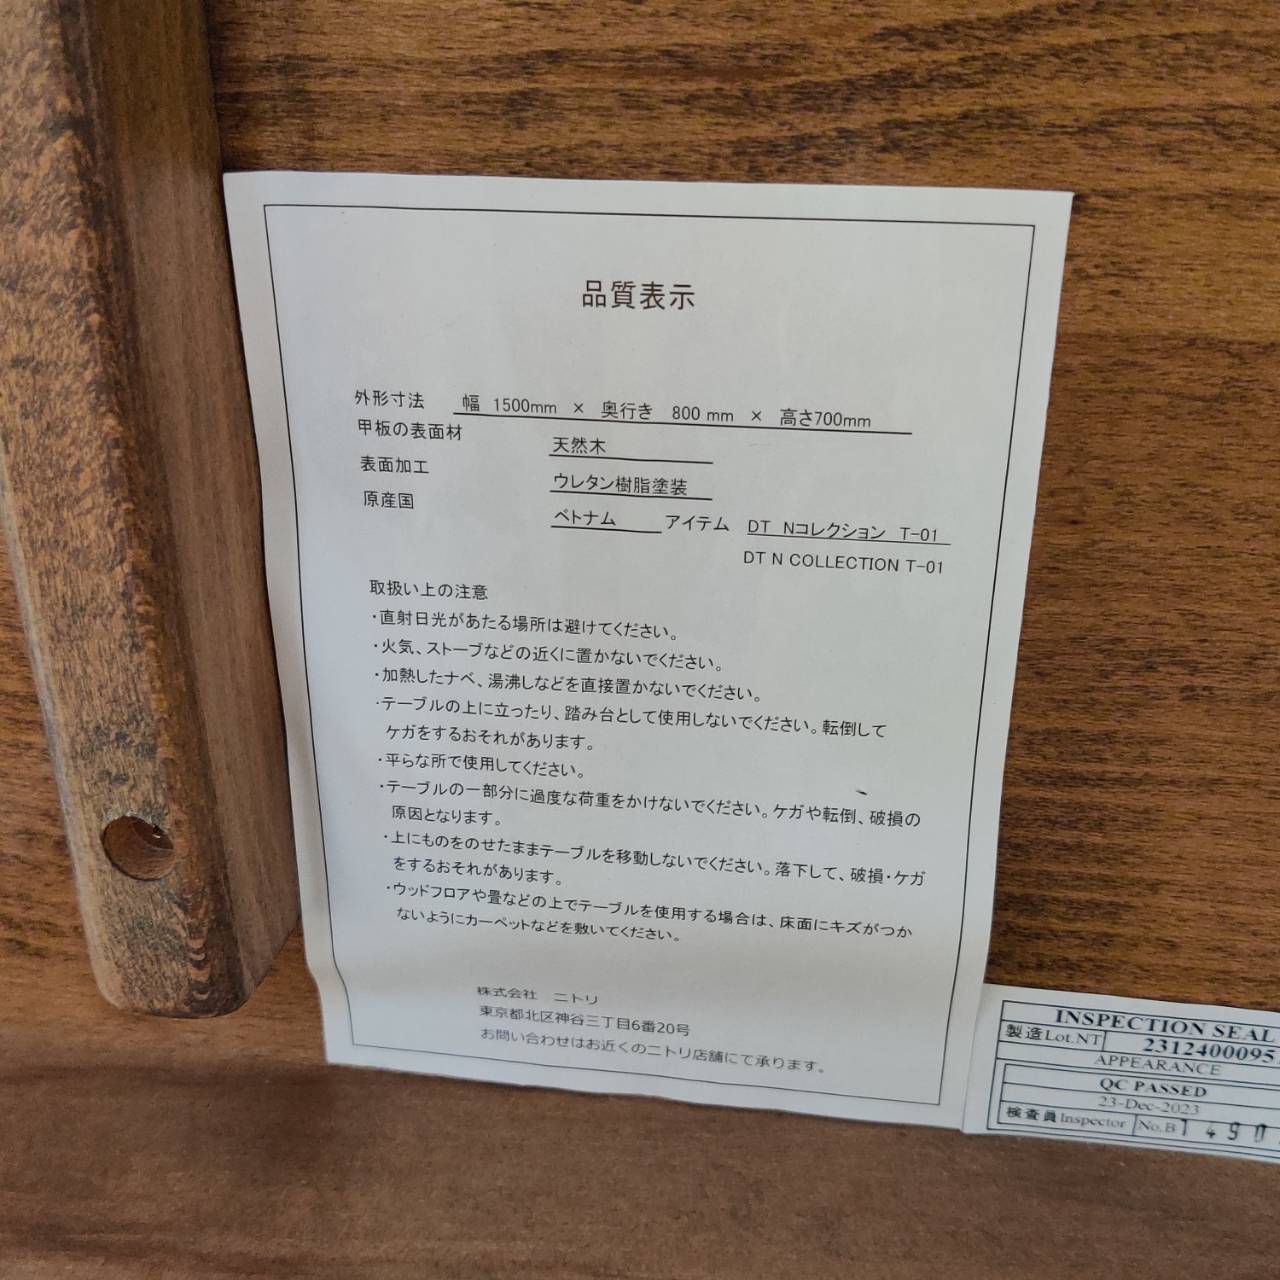 品質表示
外形寸法 幅 1500mm × 奥行き 800 mm × 高さ700mm
甲板の表面材 天然木
表面加工 ウレタン樹脂塗装
原産国 ベトナム アイテム DT Nコレクション T-01
DT N COLLECTION T-01
取扱い上の注意
・直射日光があたる場所は避けてください。
・火気、ストーブなどの近くに置かないでください。
・加熱したナベ、湯沸しなどを直接置かないでください。
・テーブルの上に立ったり、踏み台として使用しないでください。転倒して
ケガをするおそれがあります。
・平らな所で使用してください。
・テーブルの一部分に過度な荷重をかけないでください。ケガや転倒、破損の
原因となります。
・上にものをのせたままテーブルを移動しないでください。落下して、破損・ケガ
をするおそれがあります。
・ウッドフロアや畳などの上でテーブルを使用する場合は、床面にキズがつか
ないようにカーペットなどを敷いてください。
株式会社 ニトリ
東京都北区神谷三丁目6番20号
お問い合わせはお近くのニトリ店舗にて承ります。
INSPECTION SEAL
製造Lot.NT 2312400095
APPEARANCE
QC PASSED
23-Dec-2023
検査員Inspector No.B1490